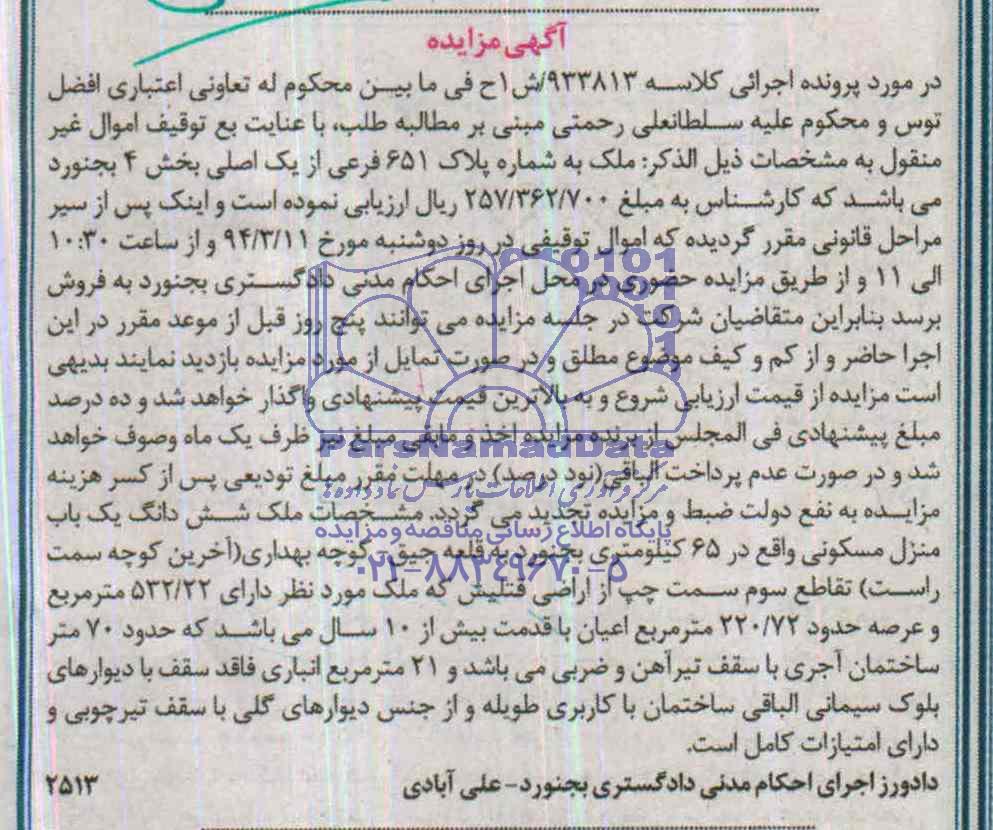 آگهی مزایده
در مورد پرونده اجرائی کلاسه ۹۳۳۸۱۳/ش۱ح فی ما بین محکوم له تعاونی اعتباری افضل
توس و محکوم علیه سلطانعلی رحمتی مبنی بر مطالبه طلب، با عنایت بع توقیف اموال غیر
منقول به مشخصات ذیل الذکر: ملک به شماره پلاک ۶۵۱ فرعی از یک اصلی بخش ۴ بجنورد
می باشد که کارشناس به مبلغ ۲۵۷/۳۶۲/۷۰۰ ریال ارزیابی نموده است و اینک پس از سیر
مراحل قانونی مقرر گردیده که اموال توقیفی در روز دوشنبه مورخ ۹۴/۳/۱۱ و از ساعت ۱۰:۳۰
الی ۱۱ و از طریق مزایده حضوری در محل اجرای احکام مدنی دادگستری بجنورد به فروش
برسد بنابراین متقاضیان شرکت در جلسه مزایده می توانند پنج روز قبل از موعد مقرر در این
اجرا حاضر و از کم و کیف موضوع مطلق و در صورت تمایل از مورد مزایده بازدید نمایند بدیهی
است مزایده از قیمت ارزیابی شروع و به بالاترین قیمت پیشنهادی واگذار خواهد شد و ده درصد
مبلغ پیشنهادی فی المجلس از برنده مزایده اخذ و مابقی مبلغ نیز ظرف یک ماه وصوف خواهد
ParsNamadData
شد و در صورت عدم پرداخت الباقی(نود درصد) در مهلت مقرر مبلغ تودیعی پس از کسر هزینه
مرکز فرآوری اطلاعات پارس نماد داده ها
مزایده به نفع دولت ضبط و مزایده تجدید می گردد. مشخصات ملک شش دانگ یک باب
پایگاه اطلاع رسانی مناقصه و مزایده
منزل مسکونی واقع در ۶۵ کیلومتری بجنورد به قلعه جیق-کوچه بهداری(آخرین کوچه سمت
۰۲۱-۸۸۳۴۹۶۷۰-۵
راست) تقاطع سوم سمت چپ از اراضی قتلیش که ملک مورد نظر دارای ۵۳۲/۲۲ مترمربع
و عرصه حدود ۲۲۰/۷۲ مترمربع اعیان با قدمت بیش از ۱۰ سال می باشد که حدود ۷۰ متر
ساختمان آجری با سقف تیرآهن و ضربی می باشد و ۲۱ مترمربع انباری فاقد سقف با دیوارهای
بلوک سیمانی الباقی ساختمان با کاربری طویله و از جنس دیوارهای گلی با سقف تیرچوبی و
دارای امتیازات کامل است.
دادورز اجرای احکام مدنی دادگستری بجنورد-علی آبادی ۲۵۱۳